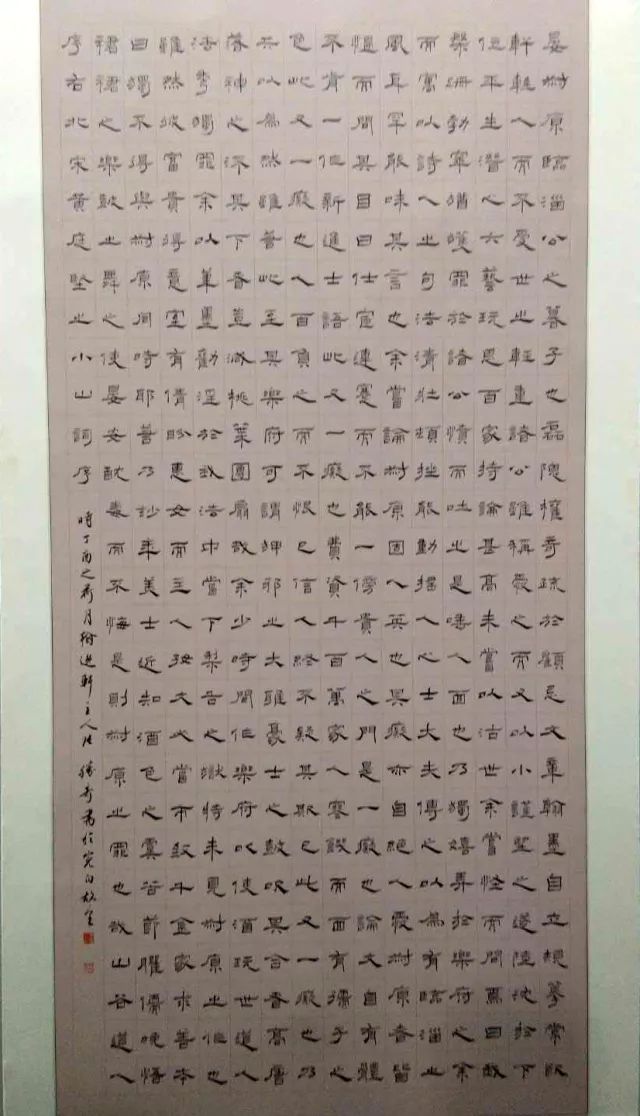 晏叔原臨淄公之暮子也磊隗權奇疏於顧忌文章翰墨自立規摹常欲
軒輊人而不受世之輕重諸公雖稱愛之而又以小謹望之遂陸沈於下
位平生潛心六藝玩思百家持論甚高未嘗以沽世余嘗怪而問焉曰我
槃跚勃窣猶獲罪於諸公憤而吐之是唾人面也乃獨嬉弄於樂府之余
而寓以詩人之句法清壯頓挫能動搖人心士大夫傳之以為有臨淄之
風耳罕能味其言也余嘗論叔原固人英也其癡亦自絕人愛叔原者皆
慍而問其目曰仕宦連蹇而不能一傍貴人之門是一癡也論文自有體
不肯一作新進士語此又一癡也費資千百萬家人寒饑而面有孺子之
色此又一癡也人百負之而不恨己信人終不疑其欺己此又一癡也乃
共以為然雖若此至其樂府可謂狎邪之大雅豪士之鼓吹其合者高唐
洛神之流其下者豈減桃葉團扇哉余少時間作樂府以使酒玩世道人
法秀獨罪余以筆墨勸淫於我法中當下犁舌之獄特未見叔原之作也
雖然彼富貴得意室有倩盼惠女而主人好文必當市致千金家求善本
曰獨不得與叔原同時耶若乃妙年美士近知酒色之虞苦節臞儒晚悟
裙裾之樂鼓之舞之使晏安酖毒而不悔是則叔原之罪也哉山谷道人
序右北宋黃庭堅之小山詞序
時丁酉之荷月軒主人